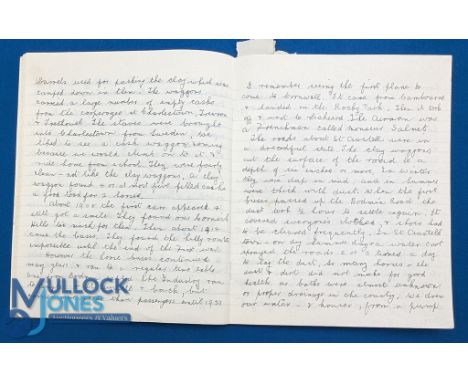 barrels used for packing the clay which was
carted down in them. The waggons
carried a large number of empty casks
from the cooperages at Charlestown, Trewoon
& Trethowel. The staves were brought
into Charlestown from Sweden, we
liked to see a cask waggon coming
because we could climb on to it &
ride home from school. They were fairly
clean - not like the clay waggons, a clay
waggon found 4 or at most five filled casks
a load for 3 horses.
About 1900 the first cars appeared &
still got a smile. They found our Cornish
hills too much for them. Then about 1912
came the buses. They found the hilly roads
impossible until the end of the first war
However the horse buses continued
many years & ran to a regular time table
than passengers until 1933
I remember seeing the first plane to
come to Cornwall. It came from Camborne
& landed in the Rocky Park. Then it took
off & went to Liskeard. The airman was
a Frenchman called Monsieur Salmet.
The roads about St Austell were in
a dreadful state. The clay waggons
cut the surface of the roads to a
depth of six inches or more. In winter
they were deep in mud, and in summer
were thick with dust. When the first
buses passed up the Bodmin Road the
dust took ½ hour to settle again. It
covered everyone's clothes & shoes had
to be cleaned frequently. In St Austell
town on dry summer days a water cart
sprayed the roads 2 or 3 times a day
to lay the dust, as many horses & the
dust & dirt did not make for good
health as baths were almost unknown
or proper drainage in the county. We drew
our water - 2 houses, from a pump.
MULLOCK
JONES
Auctioneers & Valuers